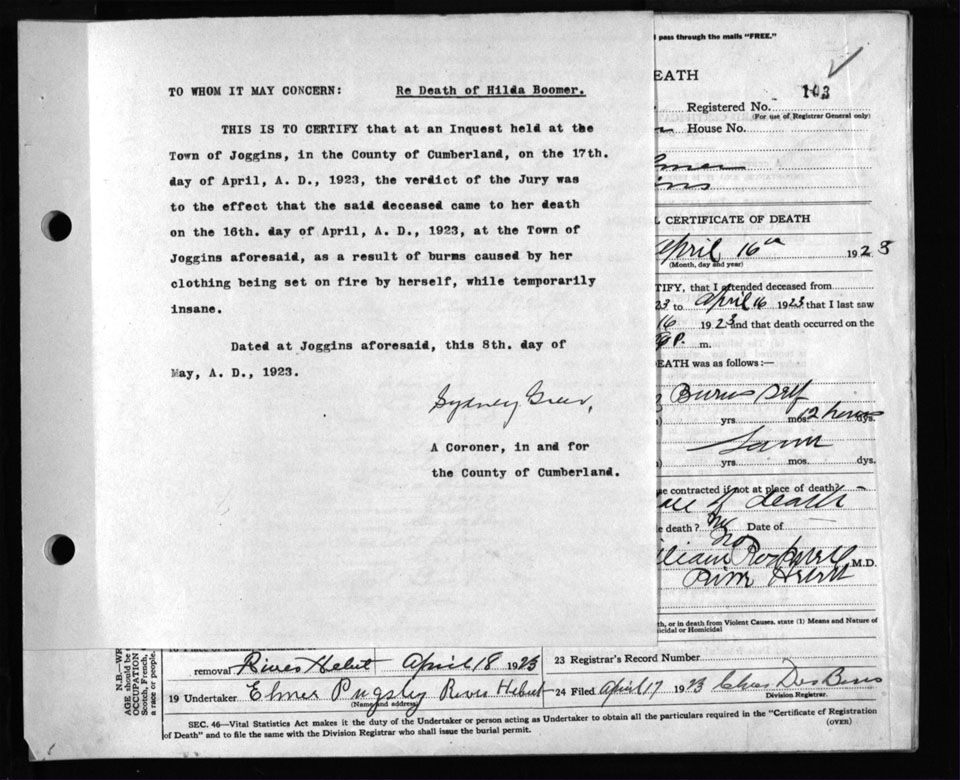 TO WHOM IT MAY CONCERN: Re Death of Hilda Boomer.
THIS IS TO CERTIFY that at an Inquest held at the
Town of Joggins, in the County of Cumberland, on the 17th.
day of April, A. D., 1923, the verdict of the Jury was
to the effect that the said deceased came to her death
on the 16th. day of April, A. D., 1923, at the Town of
Joggins aforesaid, as a result of burns caused by her
clothing being set on fire by herself, while temporarily
insane.
Dated at Joggins aforesaid, this 8th. day of
May, A. D., 1923.
Sydney
A Coroner, in and for
the County of Cumberland.
pass through the mails "FREE."
EATH
Registered No. 103
(For use of Registrar General only)
House No.
L CERTIFICATE OF DEATH
April 16 1923
(Month, day and year)
TIFY, that I attended deceased from
23 to April 16 1923 that I last saw
16 1923 and that death occurred on the
9 P. m.
EATH was as follows:—
Burns self
yrs. mos. 12 hours dys.
yrs. mos. dys.
se contracted if not at place of death?
ace of death
e death? no Date of
no
illiam Rockwell M.D.
River Hebert
th, or in death from Violent Causes, state (1) Means and Nature of
icidal or Homicidal
N.B.—WR
AGE should be
OCCUPATION
Scotch, French,
a race or people.
removal River Hebert April 18 1923 23 Registrar's Record Number
19 Undertaker Elmer Pugsley River Hebert 24 Filed April 17 1923 Chas Des Barres
(Name and address) Division Registrar.
SEC. 46—Vital Statistics Act makes it the duty of the Undertaker or person acting as Undertaker to obtain all the particulars required in the "Certificate of Registration
of Death" and to file the same with the Division Registrar who shall issue the burial permit. (OVER)